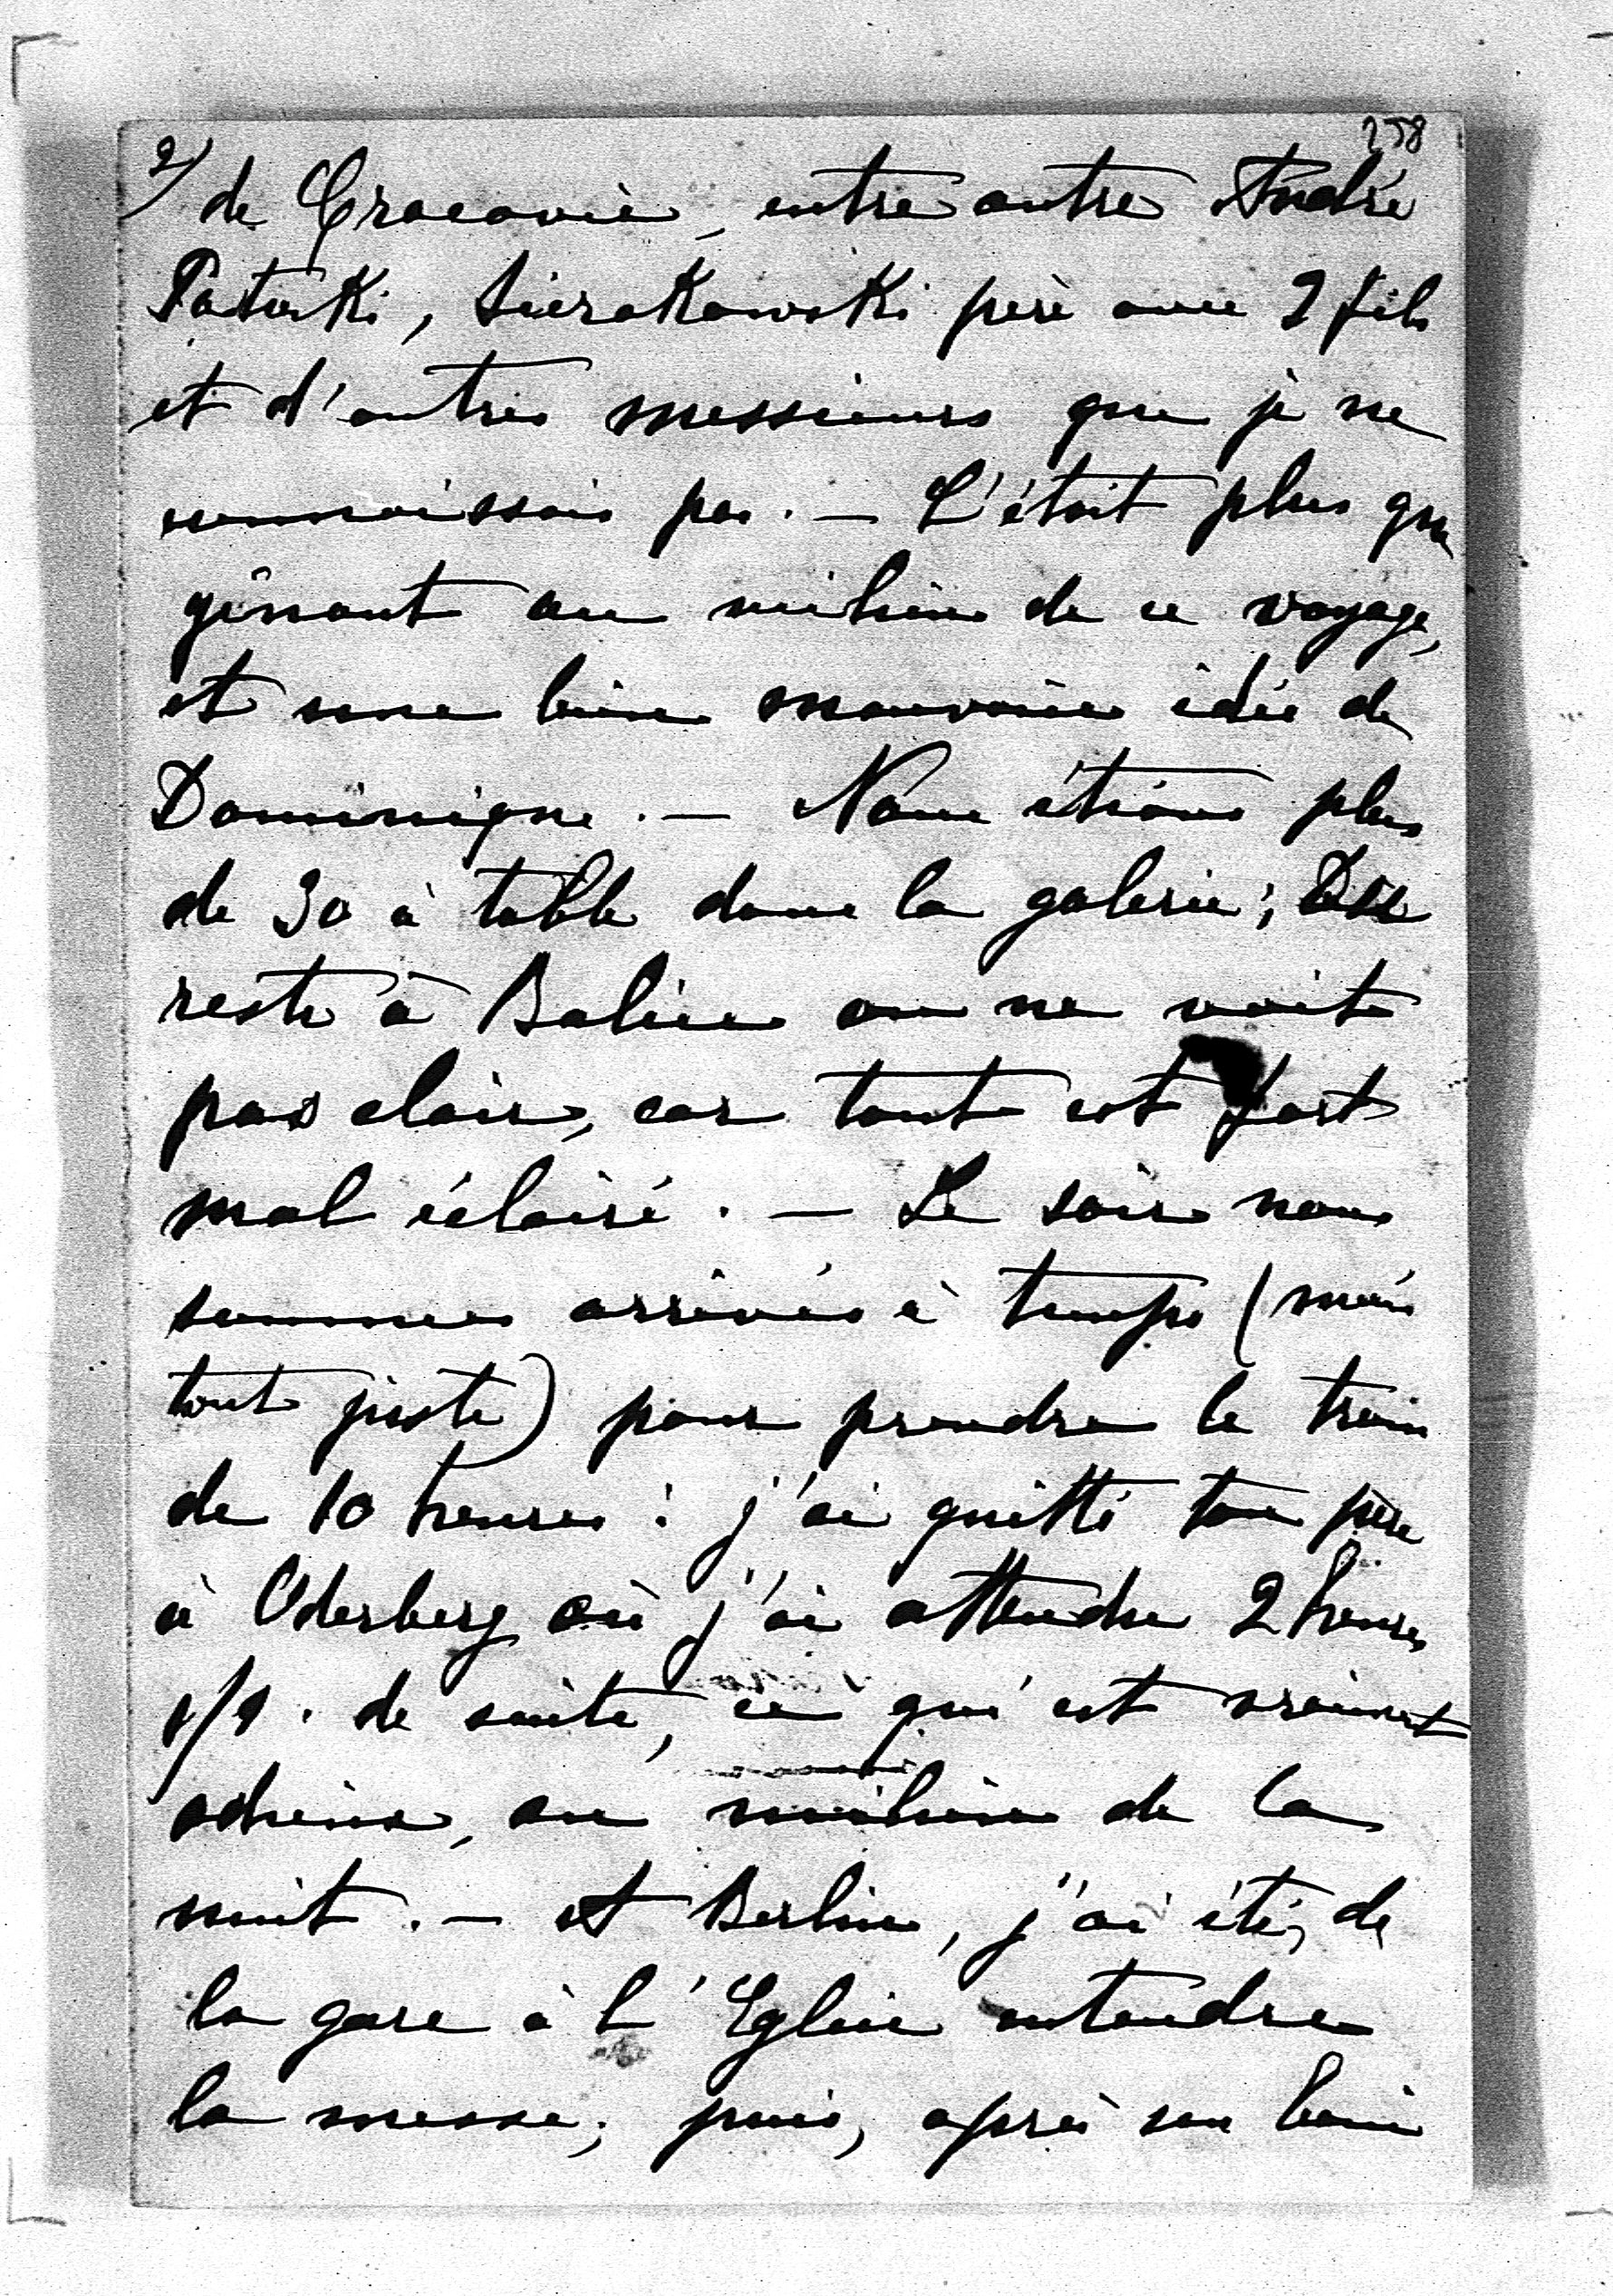 258
2/ de Cracovie, entre autre André
Potocki, Sierakowski père avec 2 fils
et d'autres messieurs que je ne
connaissais pas. — C'était plus que
gênant au milieu de ce voyage,
et une bien mauvaise idée de
Dominique. — Nous étions plus
de 30 à table dans la galerie; Du
reste à Balice on ne voit
pas clair, car tout est fort
mal éclairé. — Le soir nous
sommes arrivés à temps (mais
tout juste) pour prendre le train
de 10 heures: j'ai quitté ton père
à Oderberg où j'ai attendre 2 heures
1/2. de suite, ce qui est vraiment
odieux, au milieu de la
nuit. — A Berlin, j'ai été, de
la gare à l'Eglise entendre
la messe; puis, après un bain